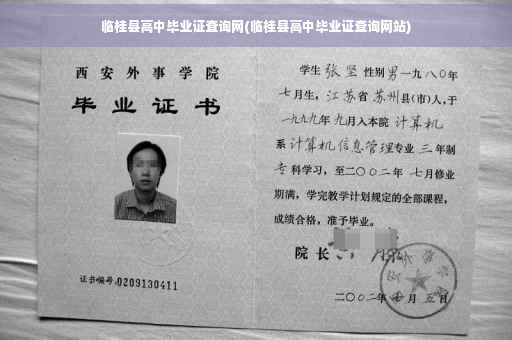 临桂县高中毕业证查询网(临桂县高中毕业证查询网站)
西安外事学院
毕业证书
证书编号:0209130411
学生 张坚 性别 男 一九八〇年
七月生，江苏省 苏州县(市)人，于
一九九九年 九月入本院 计算机
系 计算机信息管理专业 三 年制
专 科学习，至二〇〇二年 七月修业
期满，学完教学计划规定的全部课程，
成绩合格，准予毕业。
院长
二〇〇二年 月 五 日